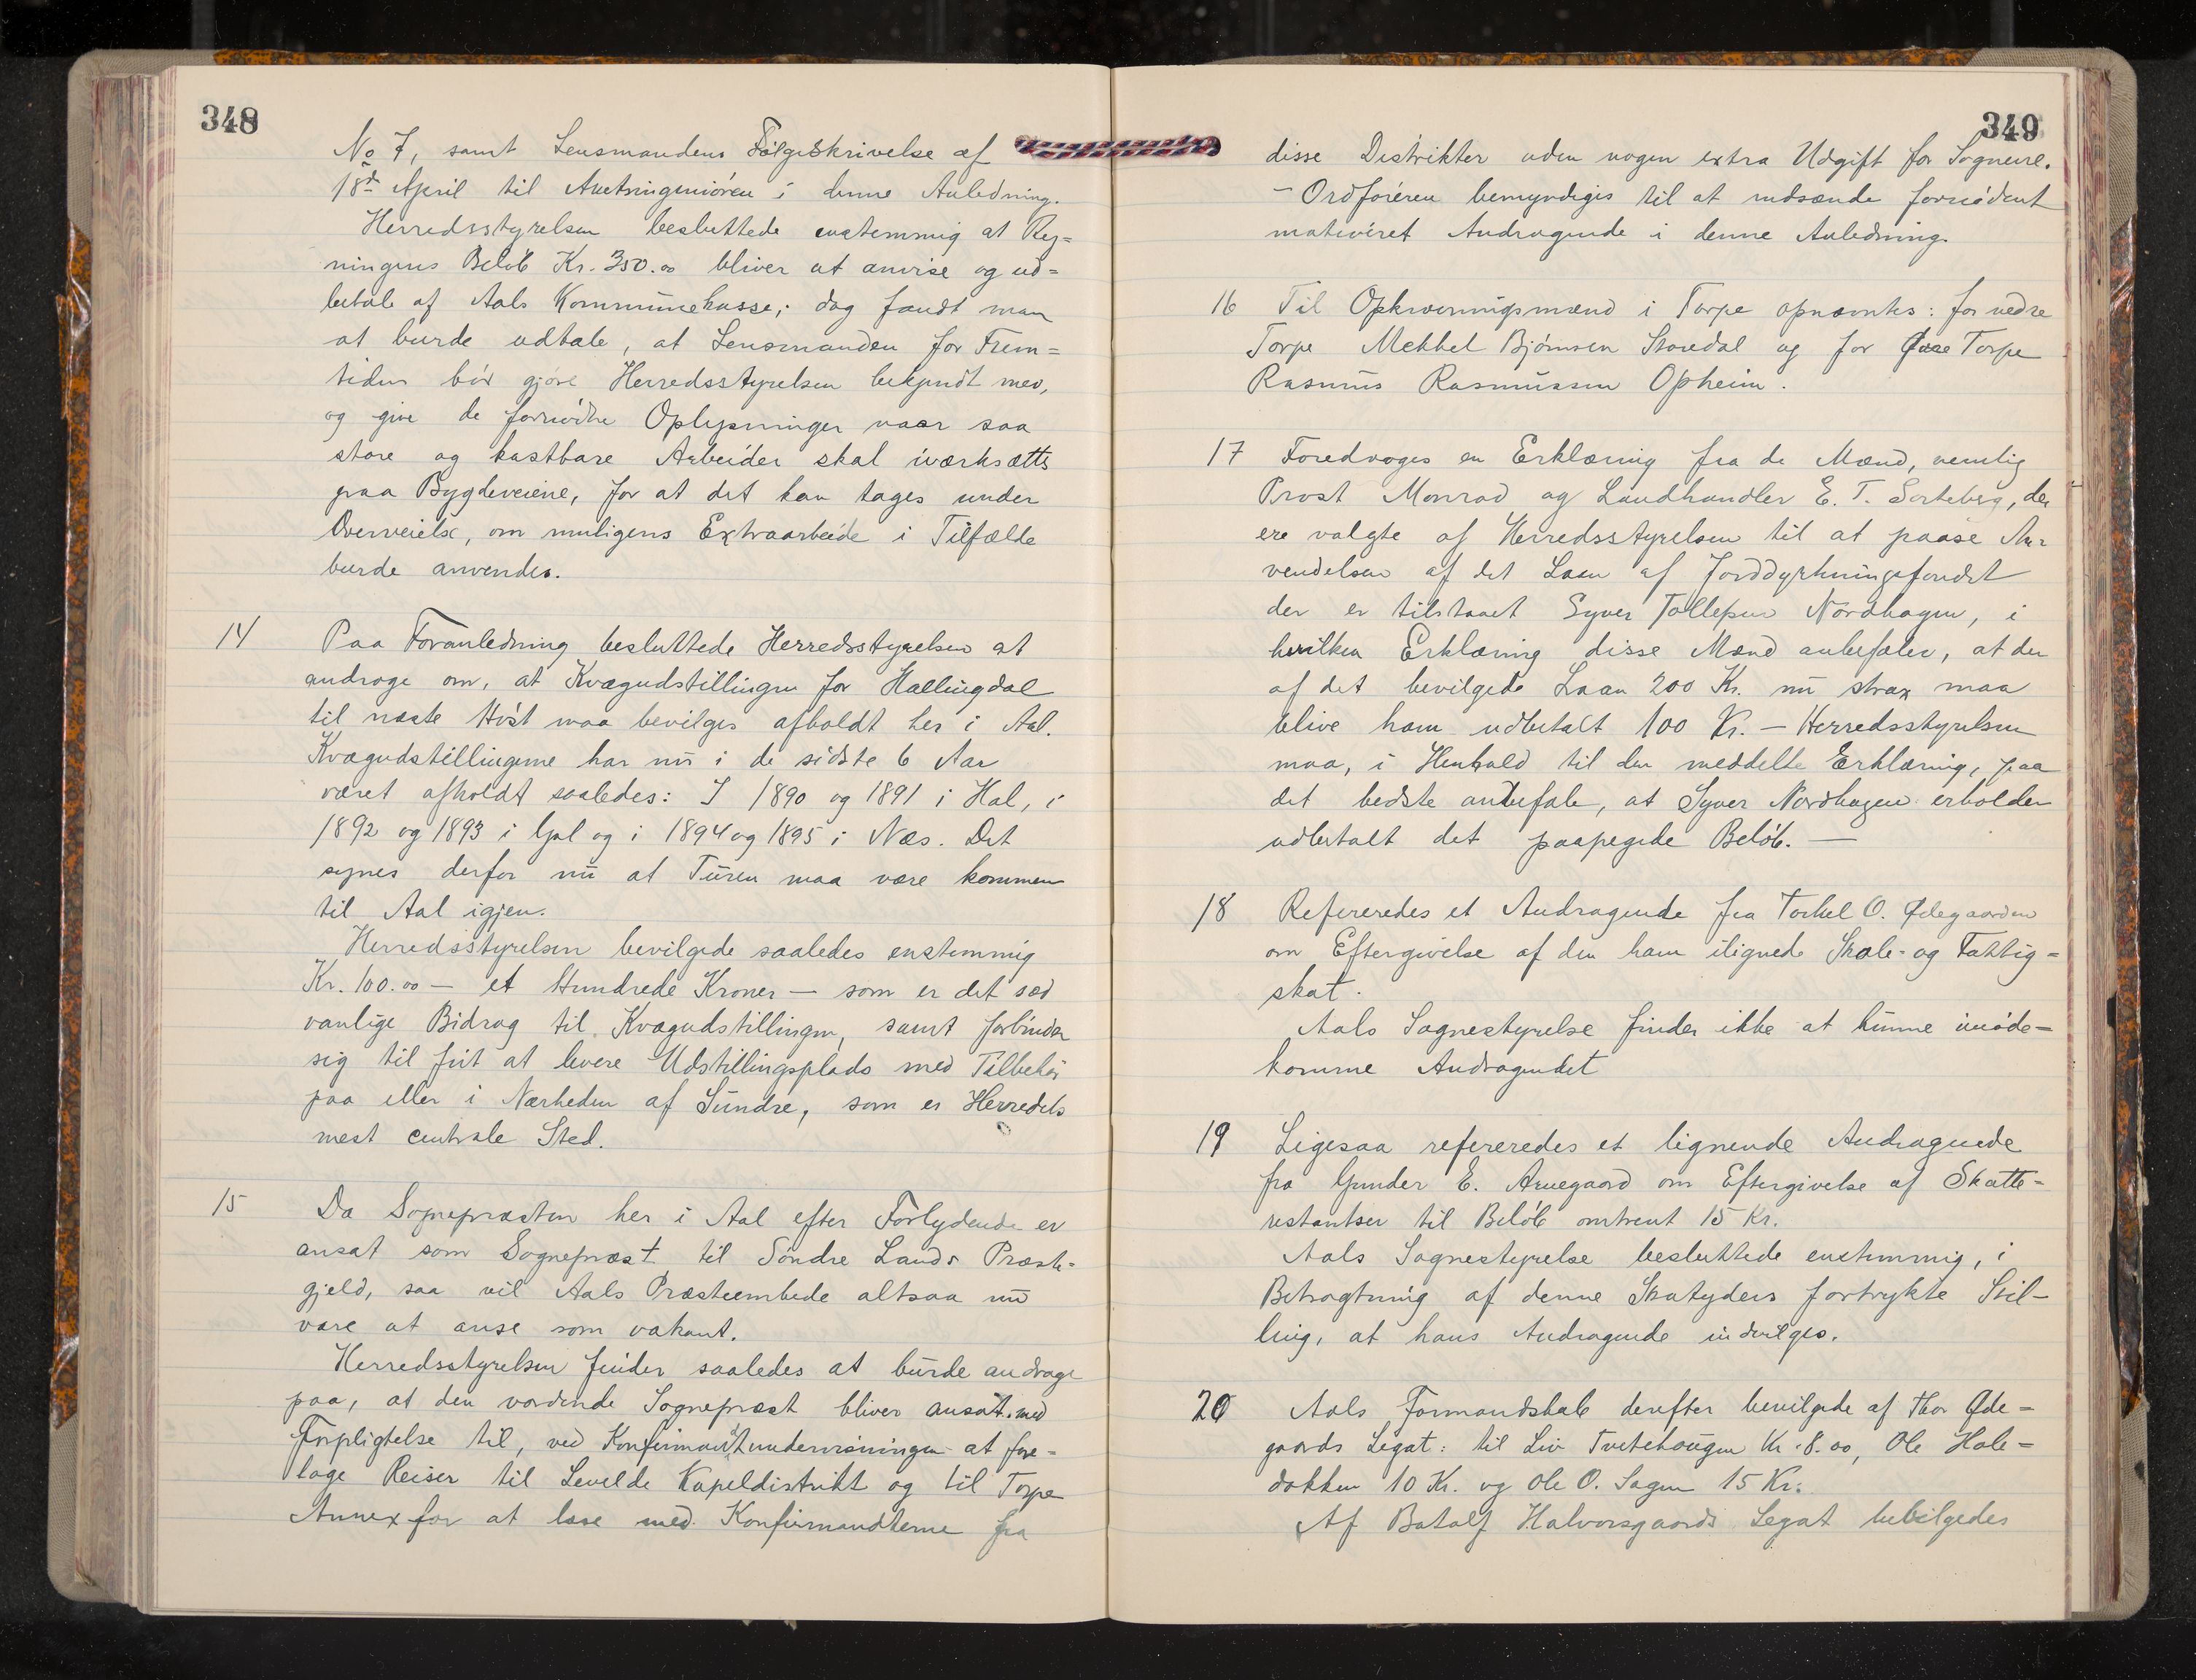 348
No 7, samt Lensmandens Følgeskrivelse af
18d April til Amtsingeniören i denne Anledning.
Herredsstyrelsen besluttede enstemmig at Reg=
ningens Belöb Kr. 350.00 bliver at anvise og ud=
betale af Aals Kommunekasse; dog fandt man
at burde udtale, at Lensmanden for Frem=
tiden bör gjöre Herredsstyrelsen bekjendt med,
og give de fornödne Oplysninger naar saa
store og kostbare Arbeider skal iværksættes
paa Bygdeveiene, for at det kan tages under
Overveielse, om muligens Extraarbeide i Tilfælde
burde anvendes.
14 Paa Foranledning besluttede Herredsstyrelsen at
androge om, at Kvægudstillingen for Hallingdal
til næste Höst maa bevilges afholdt her i Aal.
Kvægudstillingerne har nu i de sidste 6 Aar
været afholdt saaledes: I 1890 og 1891 i Hol, i
1892 og 1893 i Gol og i 1894 og 1895 i Næs. Det
synes derfor nu at Turen maa være kommen
til Aal igjen.
Herredsstyrelsen bevilgede saaledes enstemmig
Kr. 100.00 — et Hundrede Kroner — som er det sæd
vanlige Bidrag til Kvægudstillingen, samt forbinder
sig til frit at levere Udstillingsplads med Tilbehör
paa eller i Nærheden af Sundre, som er Herredets
mest centrale Sted.
15 Da Sognepræsten her i Aal efter Forlydende er
ansat som Sognepræst til Söndre Lands Præste-
gjeld, saa vil Aals Præsteembede altsaa nu
være at anse som vakant.
Herredsstyrelsen finder saaledes at burde androge
paa, at den vordende Sognepræst bliver ansat med
Forpligtelse til, ved Konfirmantundervisningen at fore=
tage Reiser til Leveld Kapeldistrikt og til Torpe
Annex for at læse med Konfirmandterne fra
349
disse Distrikter uden nogen extra Udgift for Sognene.
- Ordföreren bemyndiges til at indsende fornödent
motiveret Andragende i denne Anledning.
16 Til Opkrævningsmænd i Torpe opnævntes: for nedre
Torpe Mekkel Björnsen Storedal og for Øvre Torpe
Rasmus Rasmussen Opheim.
17 Foredroges en Erklæring fra de Mænd, nemlig
Prost Monrad og Landhandler E. T. Sorteberg, der
ere valgte af Herredsstyrelsen til at paase An=
vendelsen af det Laan af Jorddyrkningsfondet
der er tilstaaet Syver Tollefsen Nordhagen, i
hvilken Erklæring disse Mænd anbefaler, at der
af det bevilgede Laan 200 Kr. nu strax maa
blive ham udbetalt 100 Kr. — Herredsstyrelsen
maa, i Henhold til den meddelte Erklæring, paa
det bedste anbefale, at Syver Nordhagen erholder
udbetalt det paapegede Belöb. —
18 Refereredes et Andragende fra Torkel O. Ødegaarden
om Eftergivelse af den ham ilignede Skole- og Fattig=
skat.
Aals Sognestyrelse finder ikke at kunne imöde=
komme Andragendet
19 Ligesaa refereredes et lignende Andragende
fra Gunder E. Arnegaard om Eftergivelse af Skatte-
restantser til Belöb omtrent 15 Kr.
Aals Sognestyrelse besluttede enstemmig, i
Betragtning af denne Skatyders fortrykte Stil-
ling, at hans Andragende indvilges.
20 Aals Formandskab derefter bevilgede af Thor Øde=
gaards Legat: til Liv Tvetehougen Kr. 8.00, Ole Hole=
dokken 10 Kr. og Ole O. Sagen 15 Kr.
Af Botolf Halvorsgaards Legat bebilgedes